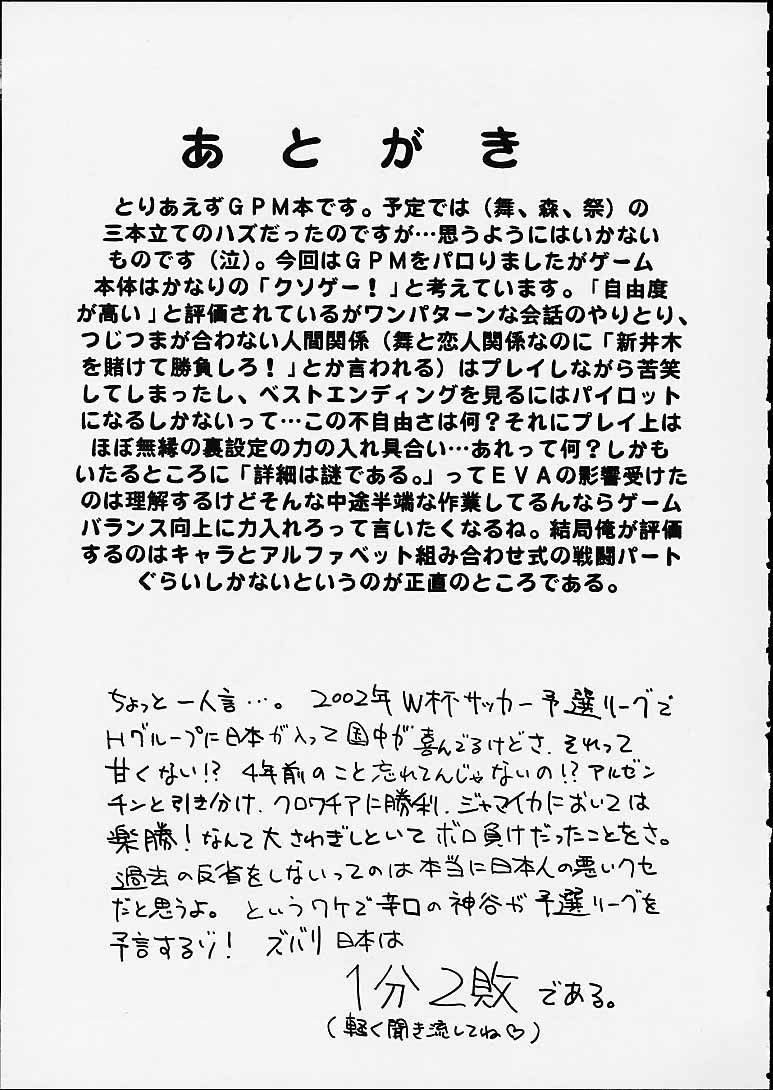 あとがき
とりあえずＧＰＭ本です。予定では（舞、森、祭）の
三本立てのハズだったのですが…思うようにはいかない
ものです（泣）。今回はＧＰＭをパロりましたがゲーム
本体はかなりの「クソゲー！」と考えています。「自由度
が高い」と評価されているがワンパターンな会話のやりとり、
つじつまが合わない人間関係（舞と恋人関係なのに「新井木
を賭けて勝負しろ！」とか言われる）はプレイしながら苦笑
してしまったし、ベストエンディングを見るにはパイロット
になるしかないって…この不自由さは何？それにプレイ上は
ほぼ無縁の裏設定の力の入れ具合い…あれって何？しかも
いたるところに「詳細は謎である。」ってＥＶＡの影響受けた
のは理解するけどそんな中途半端な作業してるんならゲーム
バランス向上に力入れろって言いたくなるね。結局俺が評価
するのはキャラとアルファベット組み合わせ式の戦闘パート
ぐらいしかないというのが正直のところである。
ちょっと一人言…。2002年W杯サッカー予選リーグで
Hグループに日本が入って国中が喜んでるけどさ、それって
甘くない!? 4年前のこと忘れてんじゃないの!? アルゼン
チンと引き分け、クロワチアに勝利、ジャマイカにおいては
楽勝！なんて大さわぎしといてボロ負けだったことをさ。
過去の反省をしないってのは本当に日本人の悪いクセ
だと思うよ。というワケで辛口の神谷が予選リーグを
予言するゾ！ ズバリ日本は
1分2敗である。
（軽く聞き流してね♡）